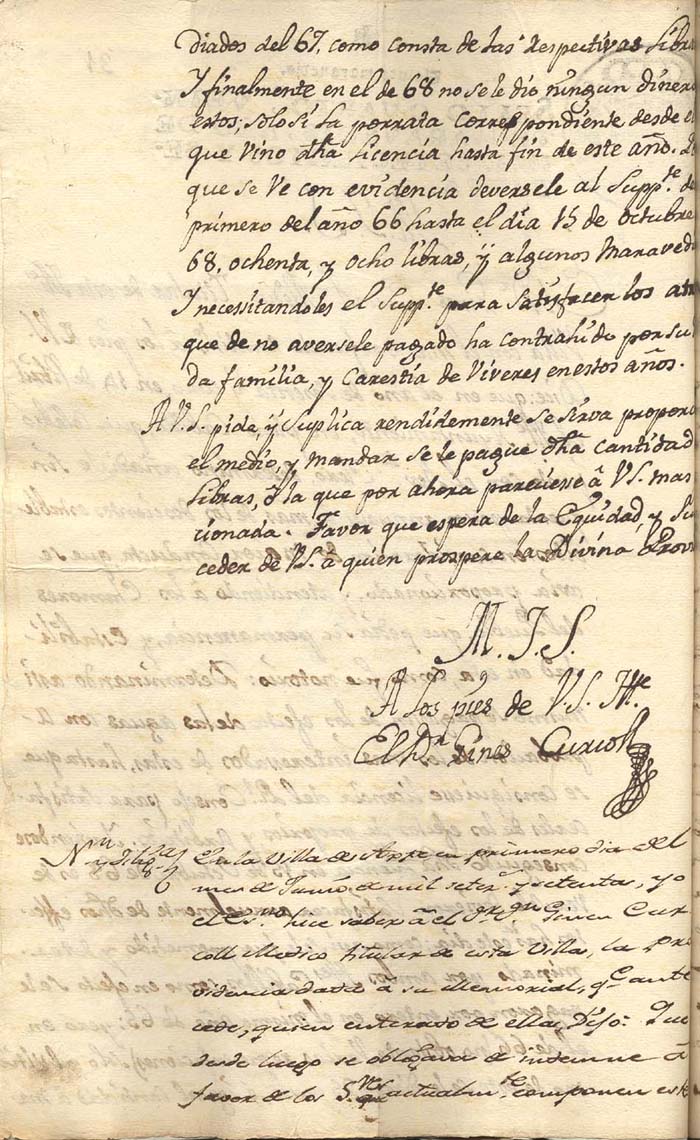 diados del 67. como consta de las Respectivas Libra
Y finalmente en el de 68 no se le dio ningun diner
estos; solo si la porrata Correspondiente desde e
que vino dha Licencia hasta fin de este año.
que se ve con evidencia deversele al Suppte. de
primero del año 66 hasta el dia 15 de octubre
68. ochenta, y ocho libras, y algunos maraved
Y necessitandoles el Suppte. para satisfacer los atr
que de no aversele pagado ha contrahido por su
da familia, y Carestia de Viveres en estos años.
A V.S. pide, y suplica rendidemente se sirva proporc
el medio, y mandar se le pague dha cantidad
libras, ô la que por ahora pareciere â V.S. mas
cionada. Favor que espera de la Equidad, y
ceder de V.S. a quien prospere la Divina Prov
M. I. S.
A los pies de V.S. Itre.
El Dr. Gines Curcoll
Non y Obligaz.n En la Villa de Aspe en primero dia del
mes de Junio de mil setez. y setenta, yo
el Essno. hice saber â el Dr. Dn. Gines Cur
coll Medico titular de esta Villa, la Pro
videncia dada â su Memorial, q.e ante
cede, quien enterado de ella, Dijo: Que
desde luego se obligava de indemne â
favor de los S.res que actualmte. componen este